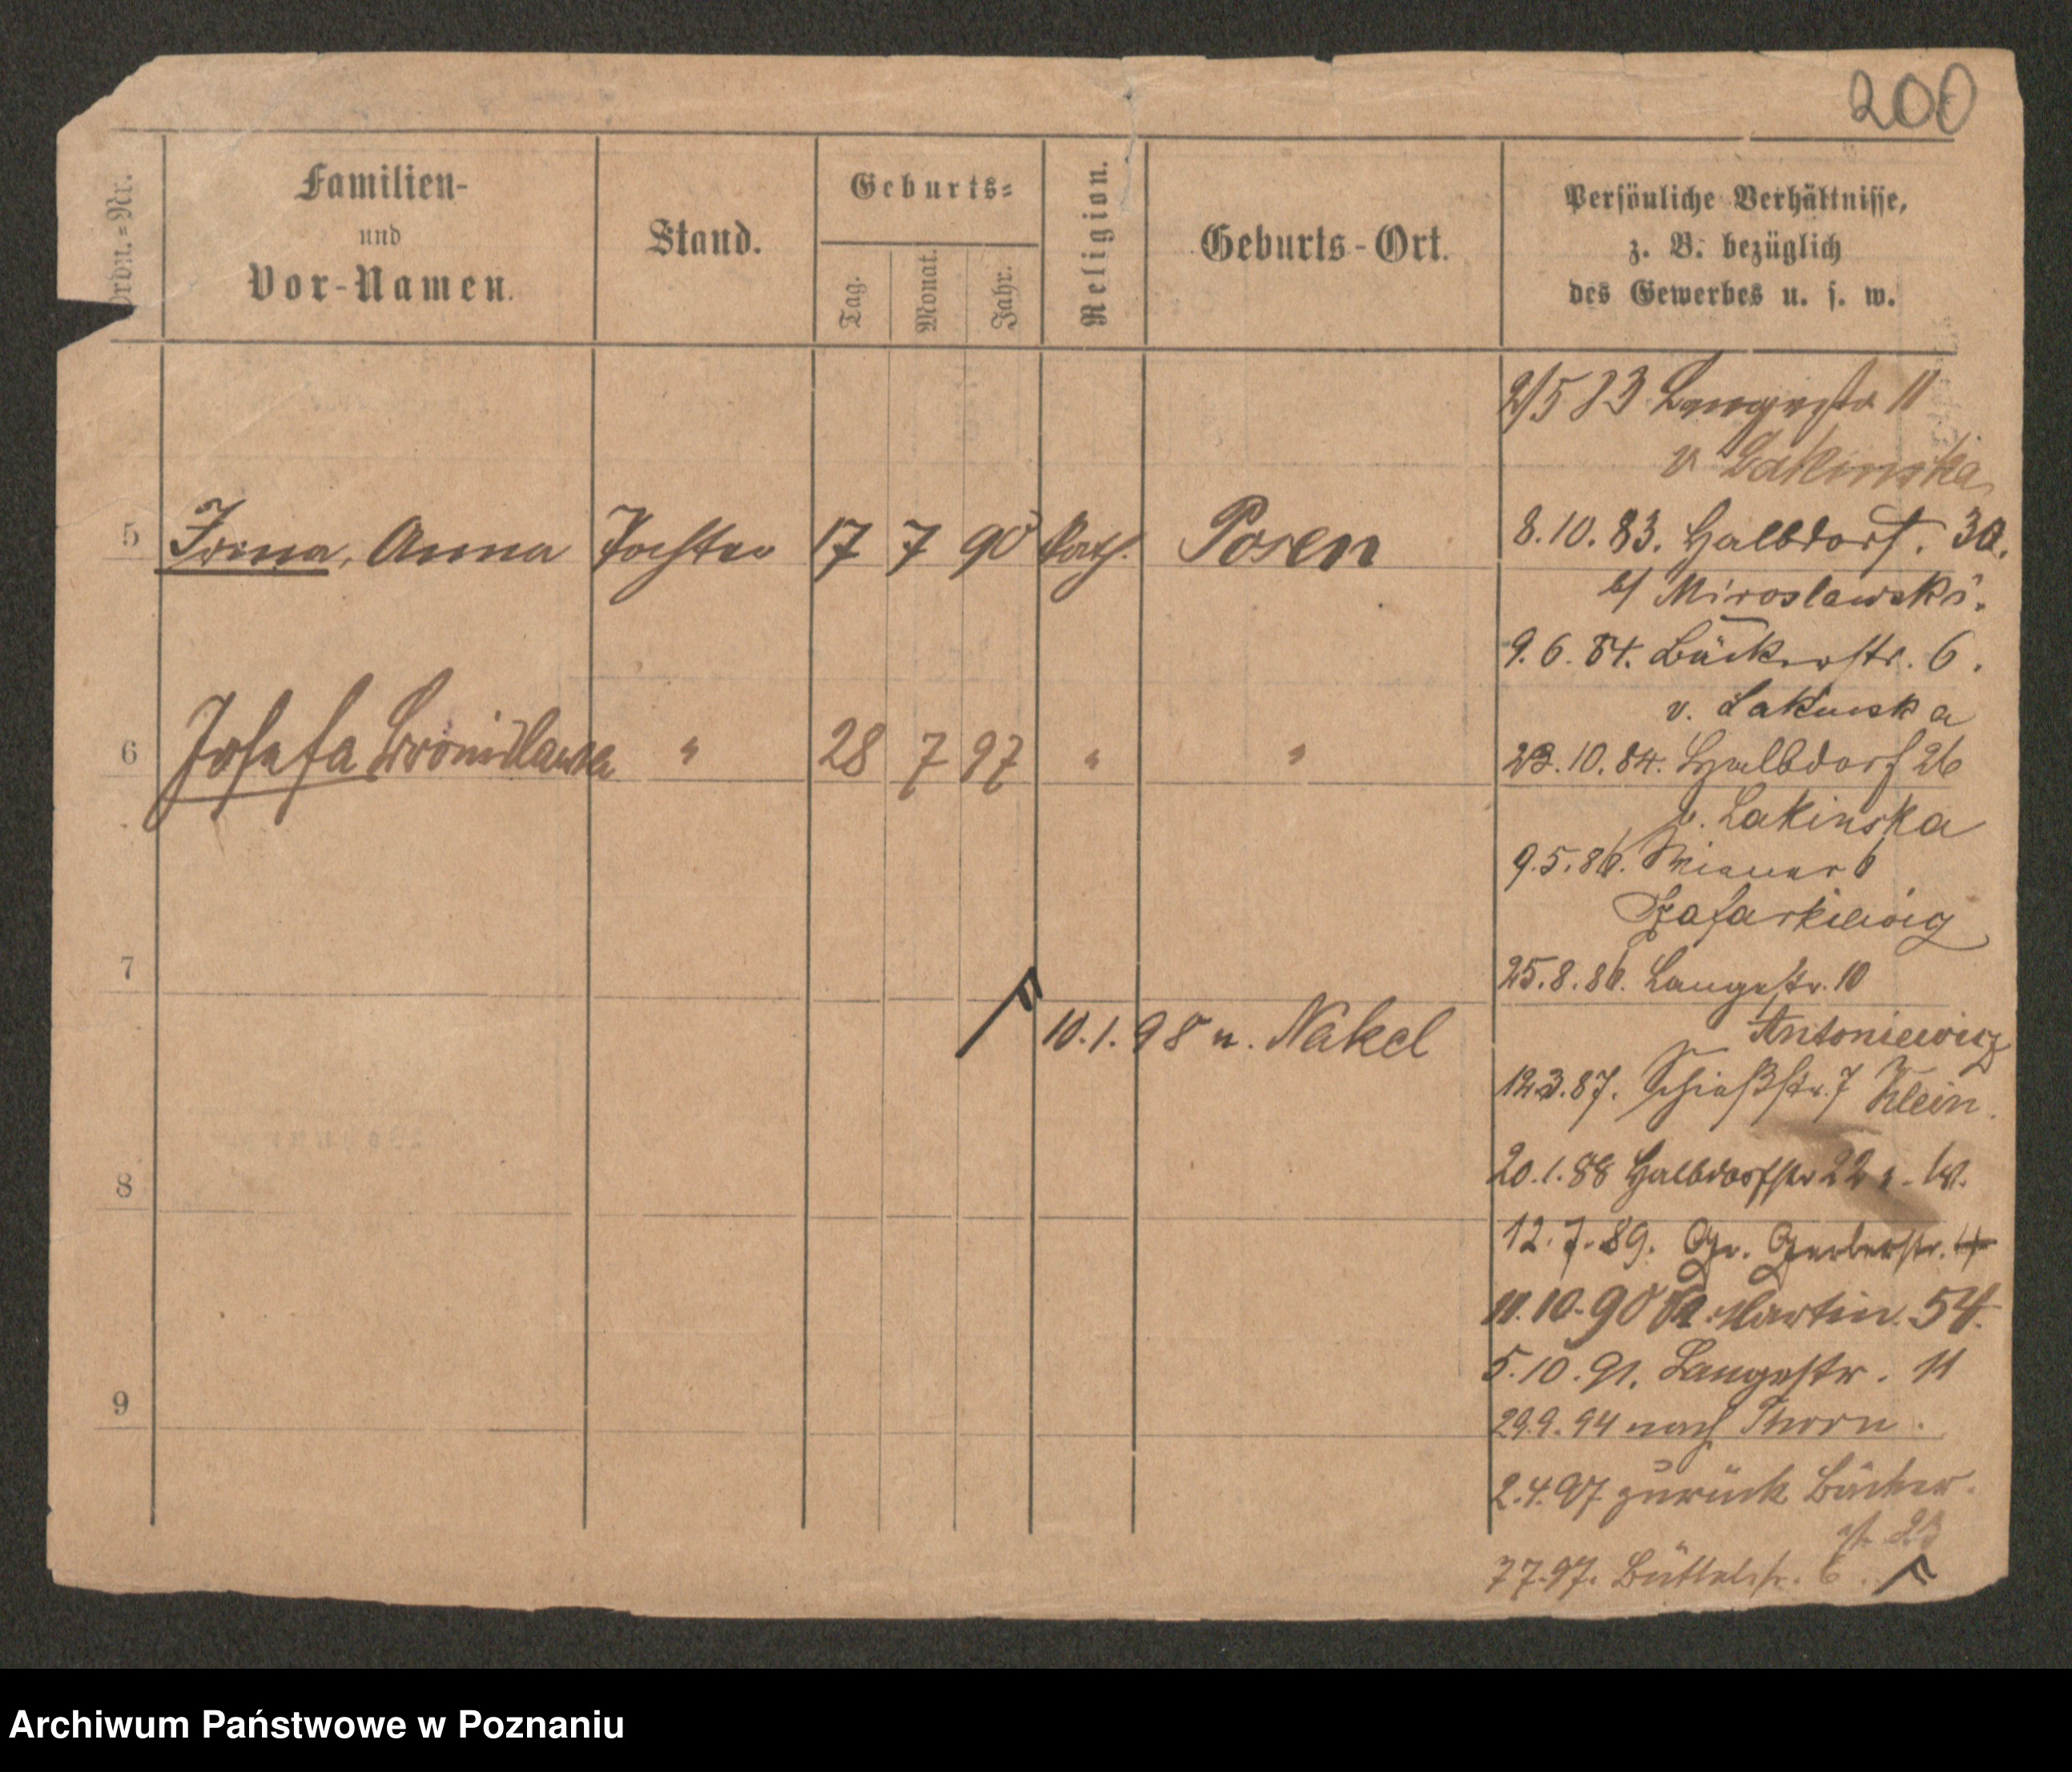 200
Ordn.=Nr.
Familien-
und
Vor-Namen.
Stand.
Geburts=
Tag.
Monat.
Jahr.
Religion.
Geburts-Ort.
Persönliche Verhältnisse,
z. B. bezüglich
des Gewerbes u. s. w.
2/5 83 Langestr 11
v Lakinska
5 Irena, Anna Tochter 17 7 90 kath. Posen
8.10.83. Halbdorf. 30.
b/ Miroslawski.
9.6.84. Bäckerstr. 6.
v. Lakinska
6 Josefa Bronislawa " 28 7 97 " "
23.10.84. Halbdorf 26
b. Lakinska
9.5.86. Wiener 6
Szafarkiewicz
7
25.8.86. Langestr. 10
10.1.98 n. Nakel
Antoniewicz
12.3.87. Schießstr. 7 Klein.
8
20.1.88 Halbdorfstr 22
12.7.89. Gr. Gerberstr. 4
11.10.90 St. Martin. 54.
5.10.91. Langestr. 11
9
29.9.94 nach Thorn.
2.4.97 zurück Bäcker-
str 23
7.7.97. Büttelstr. 6.
Archiwum Państwowe w Poznaniu